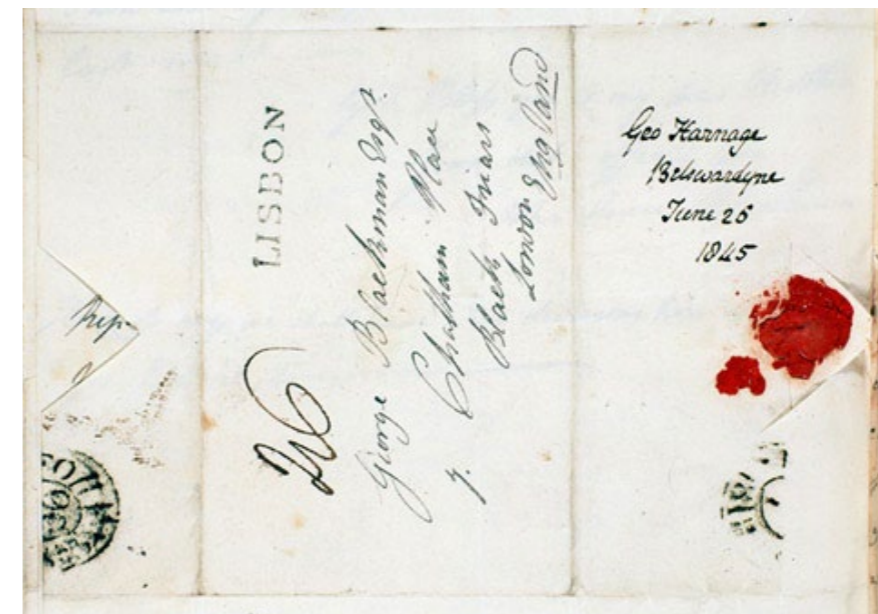 LISBON
George Blackman Esqr.
7. Chatham Place
Black Friars
London England
Geo Harnage
Belswardyne
June 25
1845